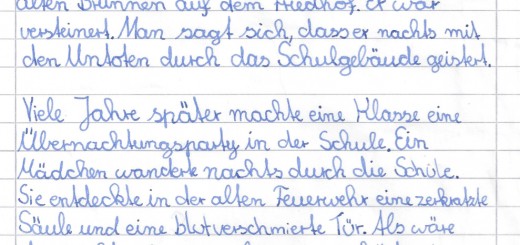 alten Brunnen auf dem Friedhof. Er war
versteinert. Man sagt sich, dass er nachts mit
den Untoten durch das Schulgebäude geistert.
Viele Jahre später machte eine Klasse eine
Übernachtungsparty in der Schule. Ein
Mädchen wanderte nachts durch die Schule.
Sie entdeckte in der alten Feuerwehr eine zerkratzte
Säule und eine blutverschmierte Tür. Als wäre